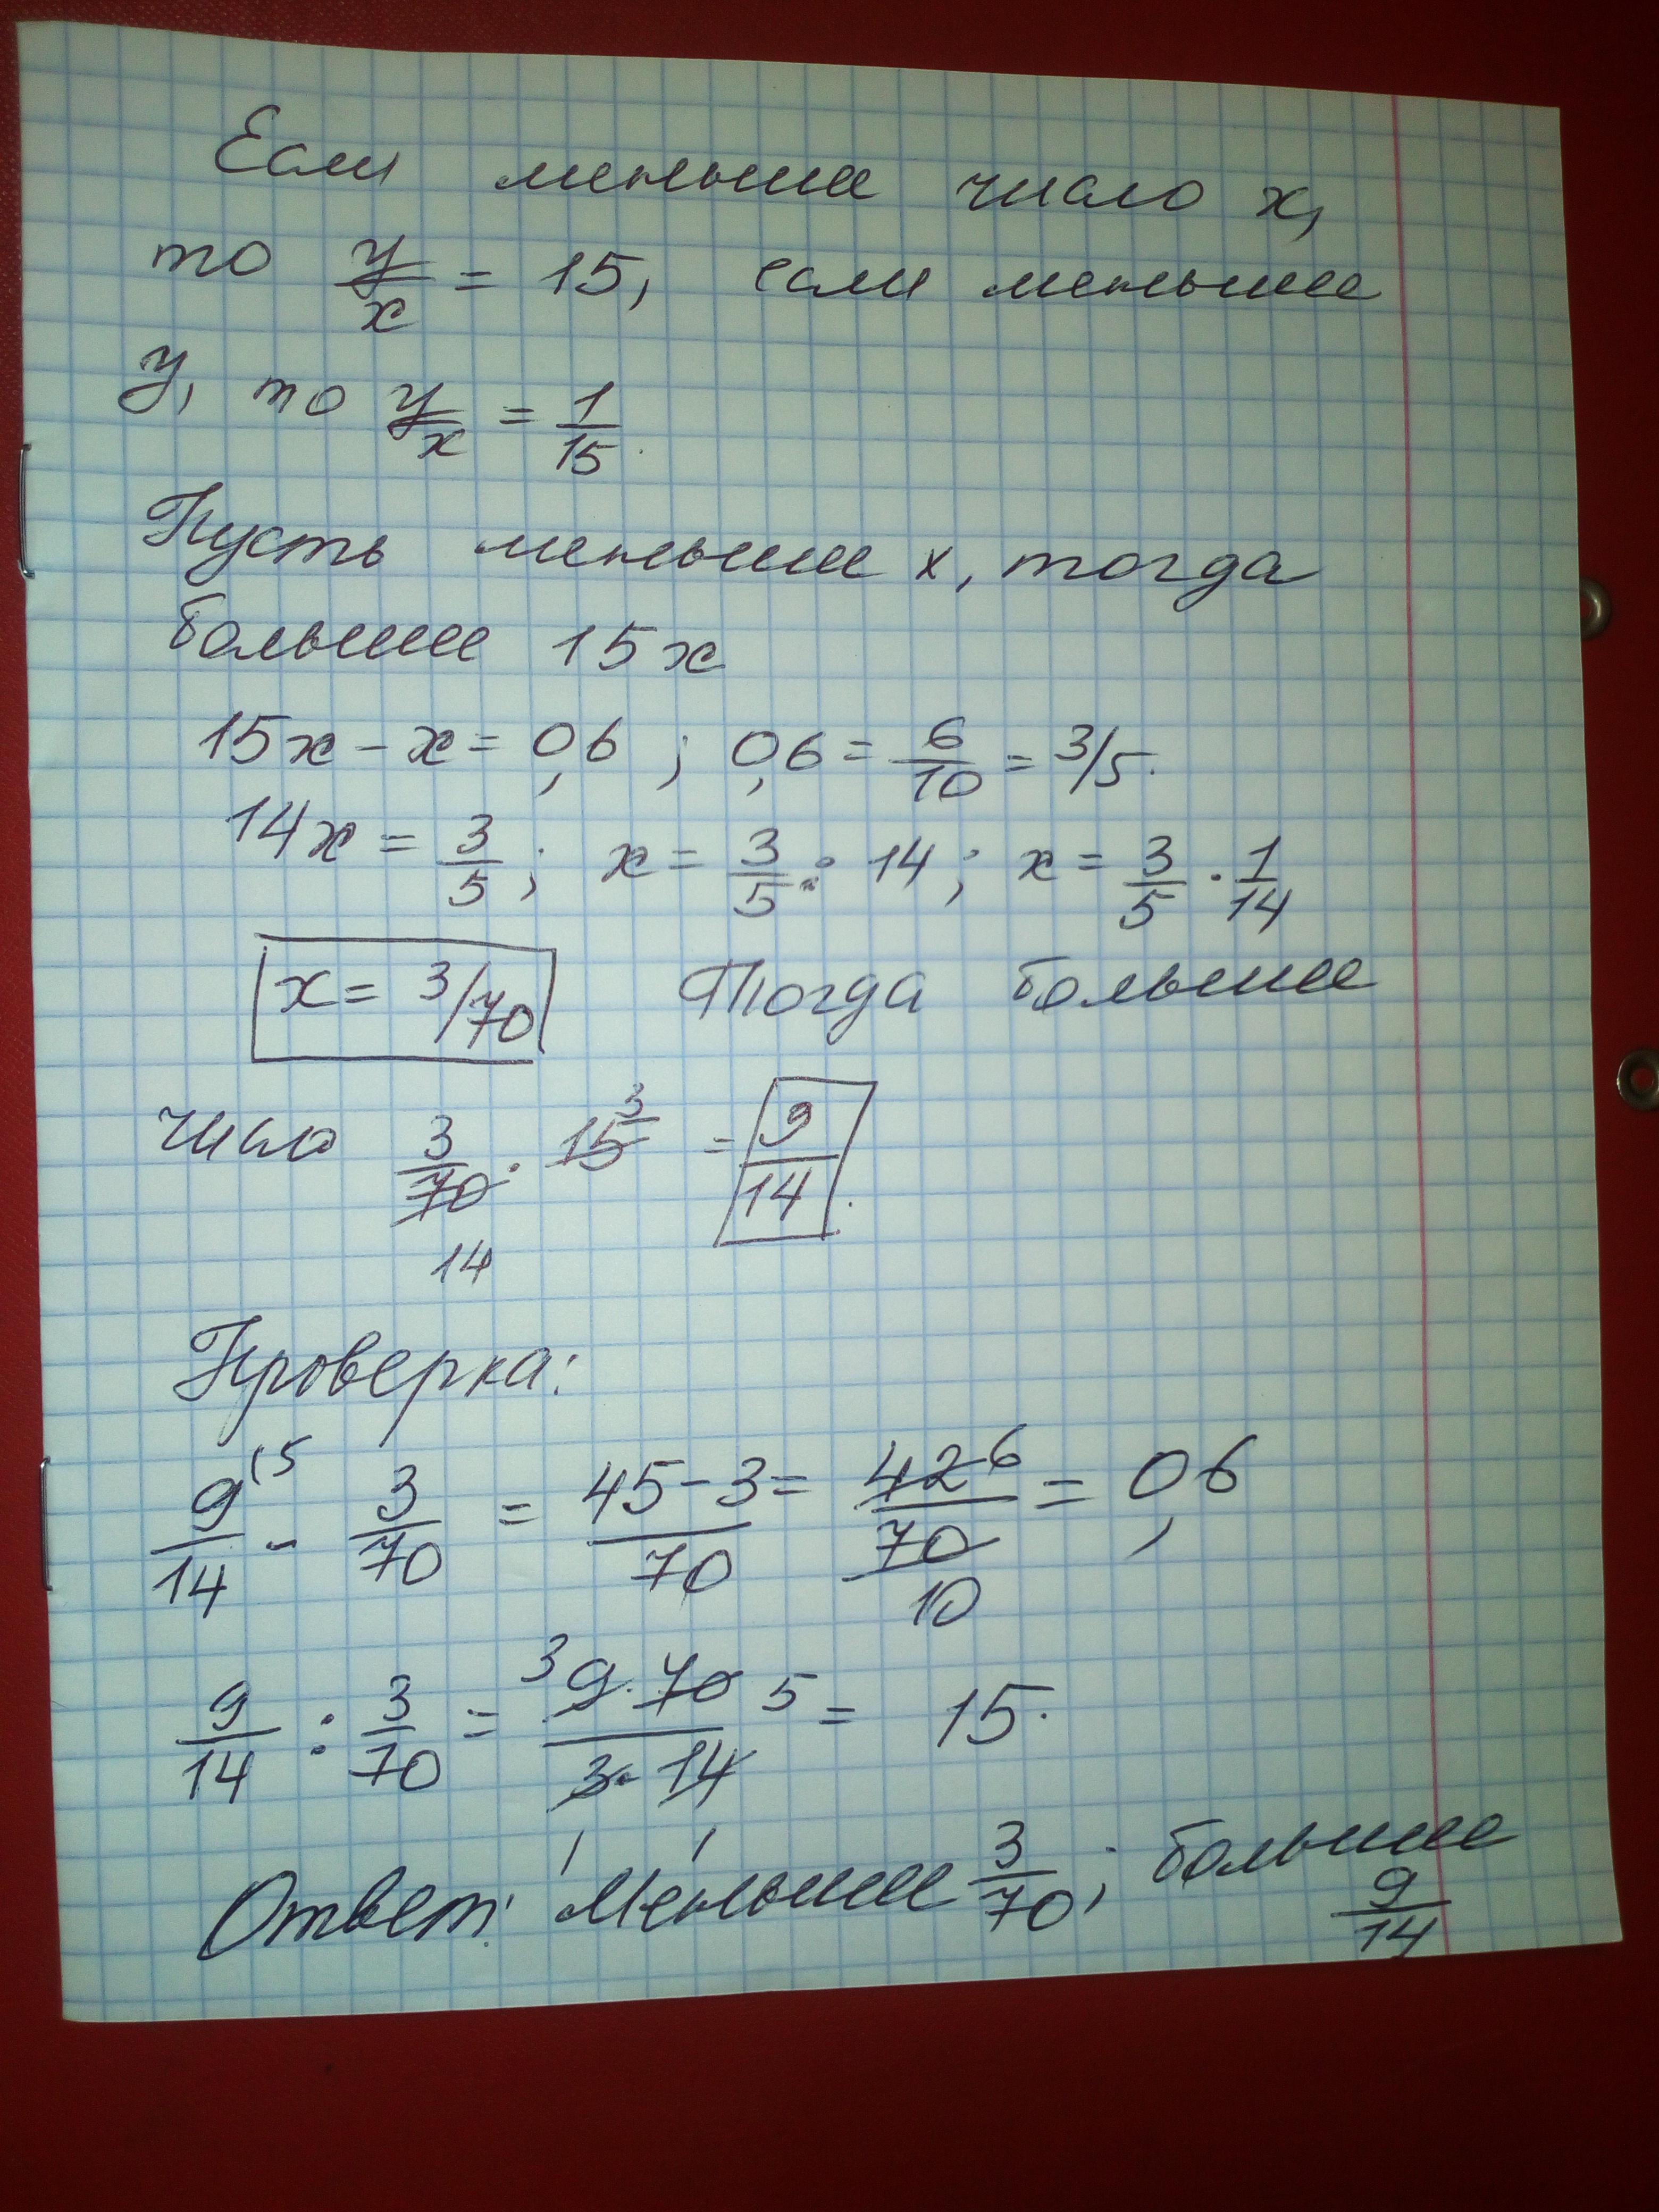 Если меньшее число x,
то y/x = 15, если меньшее
y, то y/x = 1/15.
Пусть меньшее x, тогда
большее 15x
15x - x = 0,6 ; 0,6 = 6/10 = 3/5.
14x = 3/5 ; x = 3/5 : 14 ; x = 3/5 · 1/14
x = 3/70 Тогда большее
число 3/70 · 15 3 = 9/14.
14
Проверка:
9/14 (5 - 3/70 = 45-3/70 = 42/70 6 = 0,6
10
9/14 : 3/70 = 3 9·70/3·14 5 = 15.
1 1
Ответ: меньшее 3/70; большее
9/14